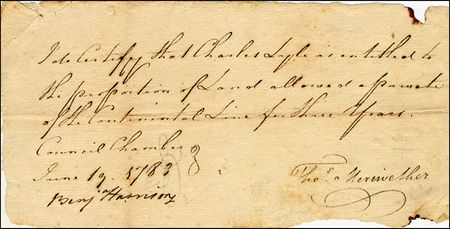 I do Certify that Charles Lyle is entitled to
the proportion of Land allowed a private
of the Continental Line for three Years.
Council Chamber
June 19 1783
Thos. Meriwether
Benj Harrison